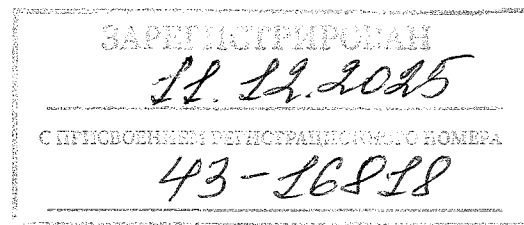 ЗАРЕГИСТРИРОВАН
11.12.2025
С ПРИСВОЕНИЕМ РЕГИСТРАЦИОННОГО НОМЕРА
43-16818